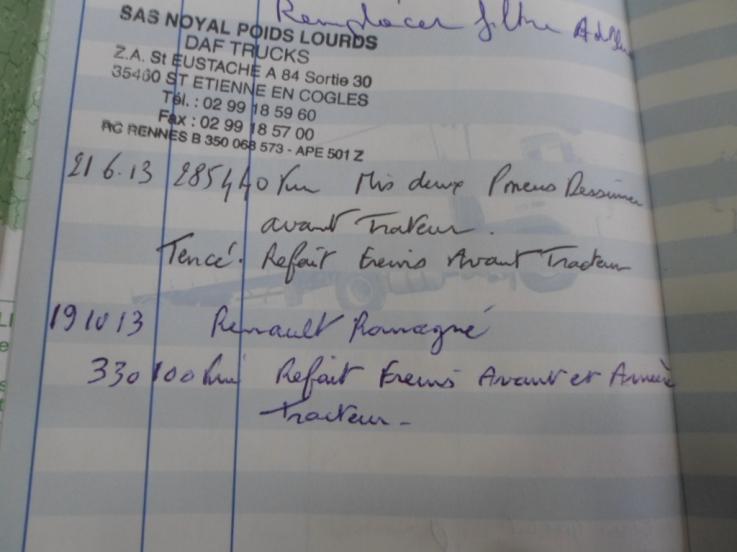 Remplacer filtre Adblue
SAS NOYAL POIDS LOURDS
DAF TRUCKS
Z.A. St EUSTACHE A 84 Sortie 30
35460 ST ETIENNE EN COGLES
Tél. : 02 99 18 59 60
Fax : 02 99 18 57 00
RC RENNES B 350 068 573 - APE 501 Z
21 6.13 285440 km Mis deux Pneus
avant Tracteur.
Refait Freins Avant Tracteur
19 10 13 Renault Romagné
330 100 km Refait Freins Avant et Arrière
Tracteur.